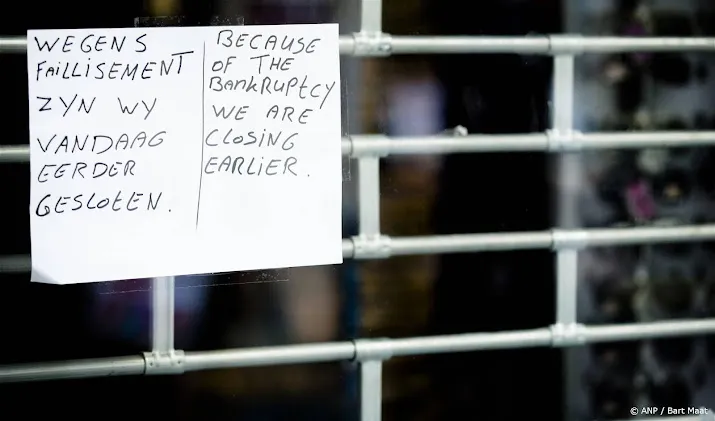 WEGENS
FAILLISEMENT
ZYN WY
VANDAAG
EERDER
GESLOTEN.
BECAUSE
OF THE
BANKRUPTCY
WE ARE
CLOSING
EARLIER.
© ANP / Bart Maat